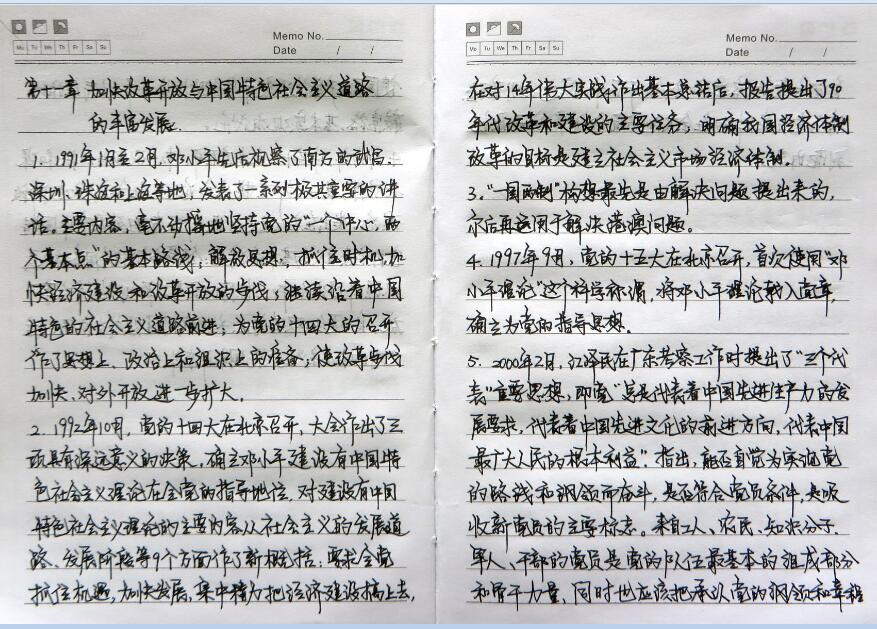 Memo No.
Mo Tu We Th Fr Sa Su
Date / /
第十一章 加快改革开放与中国特色社会主义道路
的丰富发展.
1. 1991年1月至2月,邓小平先后视察了南方的武昌、
深圳、珠海和上海等地,发表了一系列极其重要的讲
话。主要内容,毫不动摇地坚持党的"一个中心,两
个基本点"的基本路线;解放思想,抓住时机,加
快经济建设和改革开放的步伐;继续沿着中国
特色的社会主义道路前进;为党的十四大的召开
作了思想上、政治上和组织上的准备;使改革步伐
加快、对外开放进一步扩大。
2. 1992年10月,党的十四大在北京召开,大会作出了三
项具有深远意义的决策,确立邓小平建设有中国特
色社会主义理论在全党的指导地位,对建设有中国
特色社会主义理论的主要内容从社会主义的发展道
路、发展阶段等9个方面作了新概括;要求全党
抓住机遇,加快发展,集中精力把经济建设搞上去,
Memo No.
Mo Tu We Th Fr Sa Su
Date / /
在对14年伟大实践作出基本总结后,报告提出了90
年代改革和建设的主要任务,明确我国经济体制
改革的目标是建立社会主义市场经济体制。
3. "一国两制"构想最先是由解决问题提出来的,
尔后再运用于解决港澳问题。
4. 1997年9月,党的十五大在北京召开,首次使用"邓
小平理论"这个科学称谓,将邓小平理论载入党章,
确立为党的指导思想。
5. 2000年2月,江泽民在广东考察工作时提出了"三个代
表"重要思想,即党"总是代表着中国先进生产力的发
展要求,代表着中国先进文化的前进方向,代表中国
最广大人民的根本利益"指出,能否自觉为实现党
的路线和纲领而奋斗,是否符合党员条件,是吸
收新党员的主要标志。来自工人、农民、知识分子、
军人、干部的党员是党的队伍最基本的组成部分
和骨干力量,同时也应该把承认党的纲领和章程